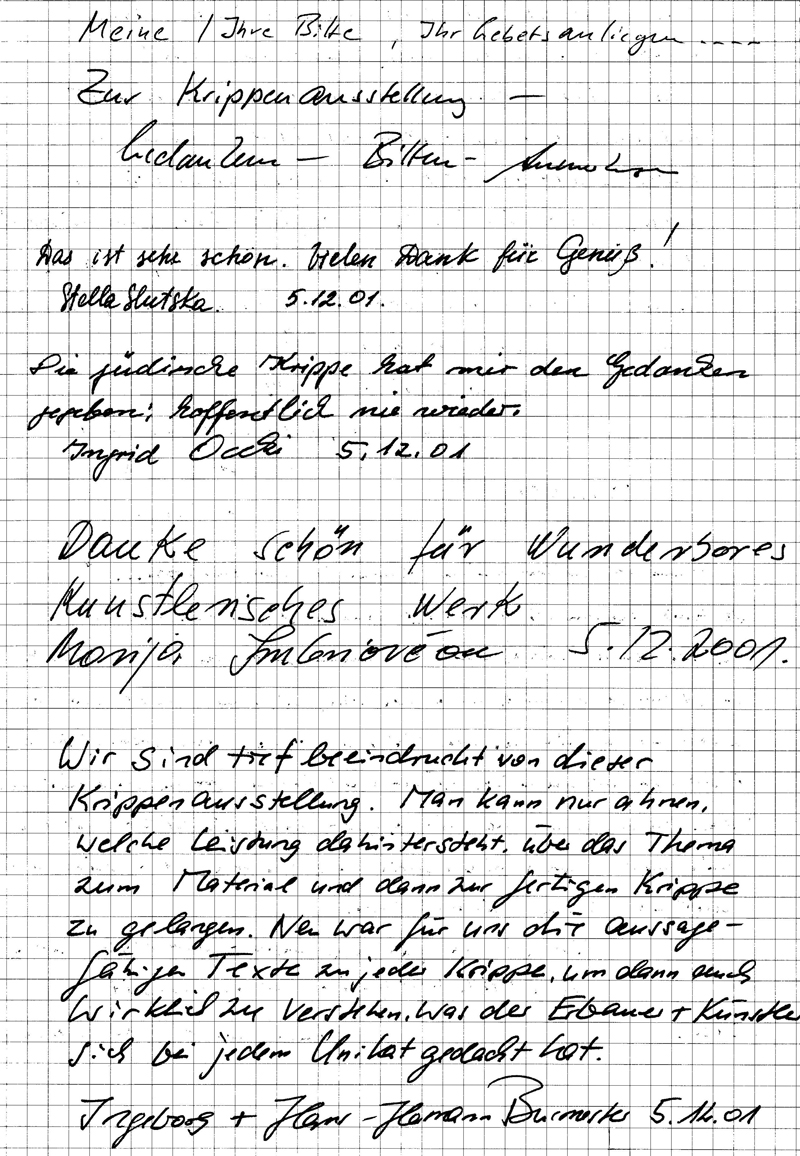 Meine / Ihre Bitte, Ihr Gebetsanliegen ....
Zur Krippenausstellung —
Gedanken — Bitten -
Das ist sehr schön. Vielen Dank für Genuß!
Stella Slutska. 5.12.01.
Die jüdische Krippe hat mir den Gedanken
gegeben; hoffentlich nie wieder.
Ingrid 5.12.01
Danke schön für Wunderbares
Kunstlerisches Werk.
Marija 5.12.2001.
Wir sind tief beeindruckt von dieser
Krippenausstellung. Man kann nur ahnen,
welche Leistung dahintersteht, über das Thema
zum Material und dann zur fertigen Krippe
zu gelangen. Neu war für uns die aussage-
fähigen Texte zu jeder Krippe, um dann auch
wirklich zu verstehen, was der Erbauer + Künstler
sich bei jedem Unikat gedacht hat.
Ingeborg + Hans-Hermann Burmester 5.12.01